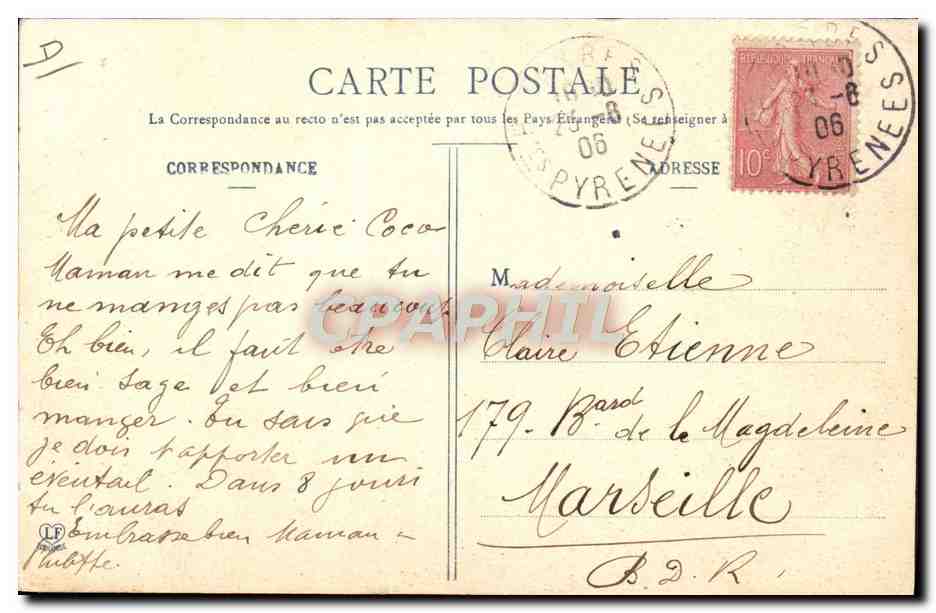 CARTE POSTALE
La Correspondance au recto n'est pas acceptée par tous les Pays Étrangers (Se renseigner à
CORRESPONDANCE
ADRESSE
RÉPUBLIQUE FRANÇAISE
10c
PYRENEES
06
PYRENEES
06
Ma petite Chérie Coco
Maman me dit que tu
ne manges pas beaucoup.
Eh bien, il faut être
bien sage et bien
manger. Tu sais que
je dois t'apporter un
éventail. Dans 8 jours
tu l'auras
Embrasse bien Maman
LF
Mademoiselle
Claire Etienne
179 - Bard de la Magdeleine
Marseille
B. D. R.
CPAPHIL